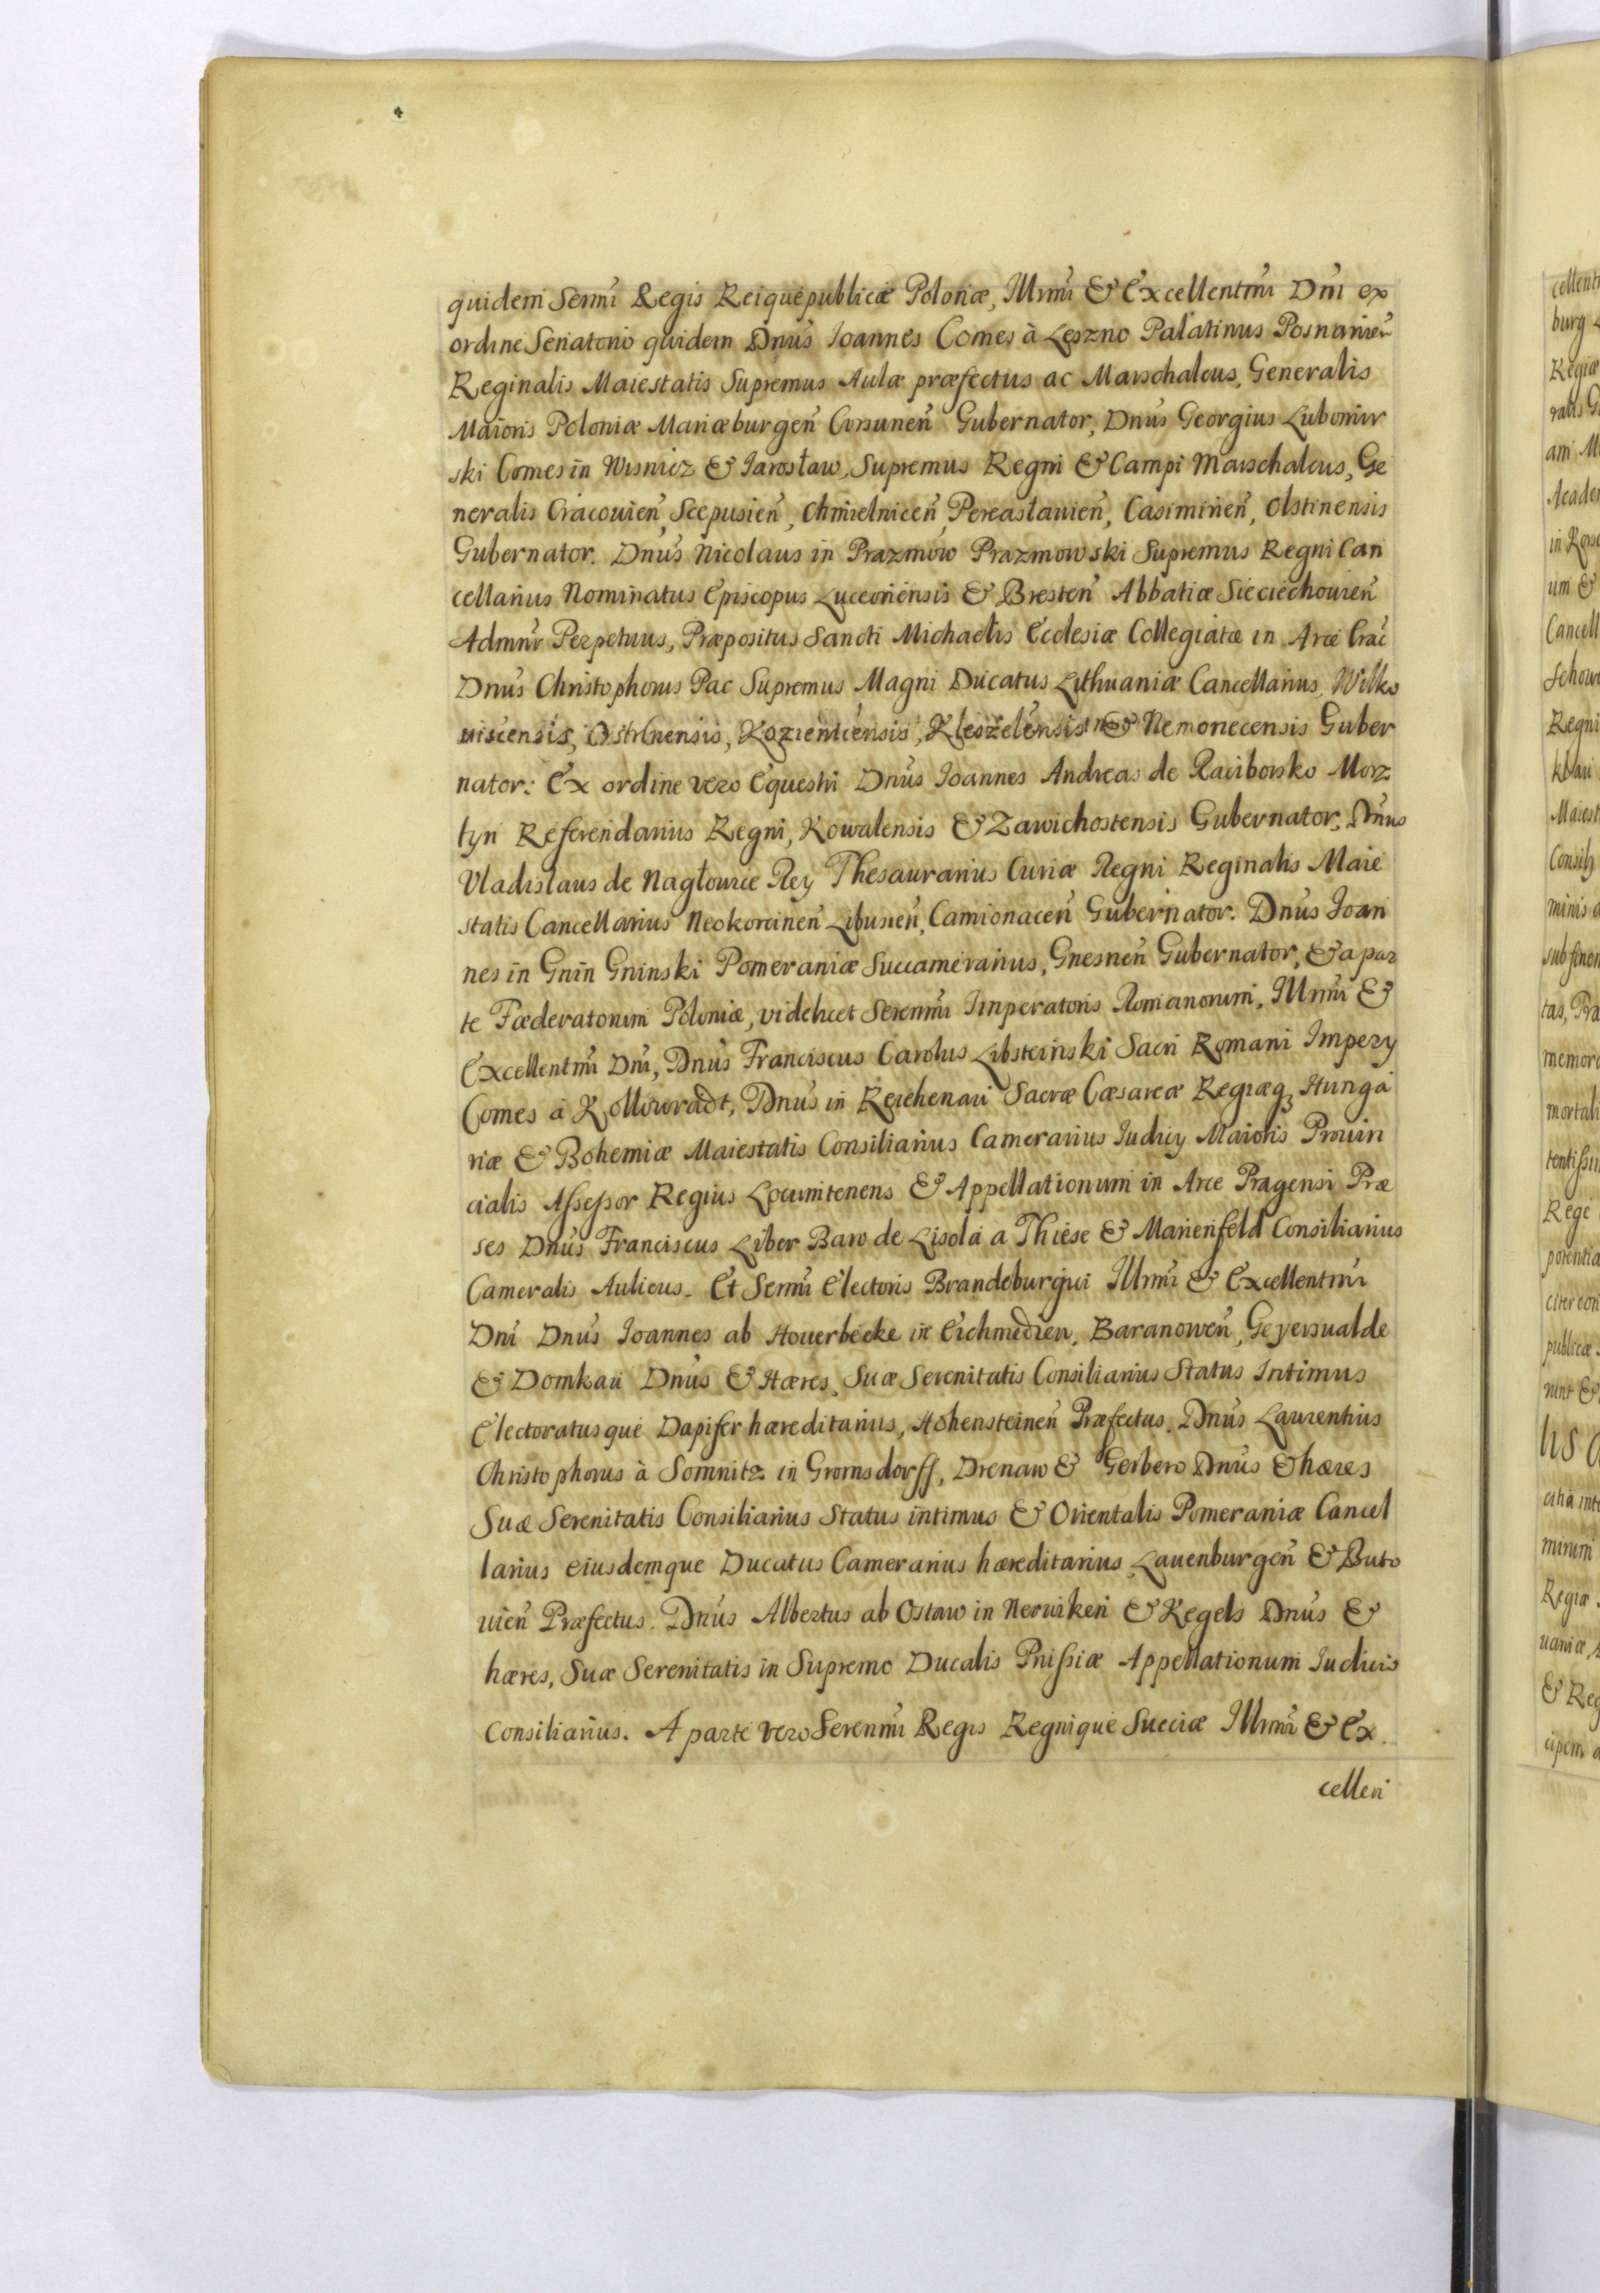 quidem Sermi Regis Reiquepublicæ Polonæ, Illrmi & Excellentmi Dni ex
ordine Senatorio quidem Dnus Ioannes Comes à Leszno Palatinus Posnanien
Reginalis Maiestatis Supremus Aulæ præfectus ac Marschalcus, Generalis
Maioris Poloniæ Mariæburgen Corsunen Gubernator, Dnus Georgius Lubomir
ski Comes in Wisnicz & Iarosław, Supremus Regni & Campi Marschalcus, Ge
neralis Cracouien, Scepusien, Chmielnicen Pereasłauien, Casimirien, Olstinensis
Gubernator. Dnus Nicolaus in Prazmow Prazmowski Supremus Regni Can
cellarius Nominatus Episcopus Luceoriensis & Bresten Abbatiæ Sieciechouien
Admnr Perpetuus, Præpositus Sancti Michaelis Ecclesiæ Collegiatæ in Arce Crac
Dnus Christophorus Pac Supremus Magni Ducatus Lithuaniæ Cancellarius, Wilko
uiscensis, Kozienicensis, Kleszelensis & Nemonecensis Guber
nator: Ex ordine vero Equestri Dnus Ioannes Andreas de Raciborsko Morz
tyn Referendarius Regni, Kowalensis & Zawichostensis Gubernator, Dnus
Vladislaus de Nagłowice Rey Thesaurarius Curiæ Regni Reginalis Maie
statis Cancellarius Neokorcinen Libusien, Camionacen Gubernator. Dnus Ioan
nes in Gnin Gninski Pomeraniæ Succamerarius, Gnesnen Gubernator, & a par
te Fæderatorum Poloniæ, videlicet Serenmi Imperatoris Romanorum, Illrmi &
Excellentmi Dni, Dnus Franciscus Carolus Libsteinski Sacri Romani Impery
Comes à Kollowradt, Dnus in Reichenau Sacræ Cæsareæ Regiæq3 Hunga
riæ & Bohemiæ Maiestatis Consiliarius Camerarius Iudicy Maioris Prouin
cialis Assessor Regius Locumtenens & Appellationum in Arce Pragensi Præ
ses Dnus Franciscus Liber Baro de Lisola a Thiese & Marienfeld Consiliarius
Cameralis Aulicus. Et Sermi Electoris Brandeburgici Illrmi & Excellentmi
Dni Dnus Ioannes ab Houerbecke in Eichmedien, Baranowen, Geyersualde
& Domkau Dnus & Hæres, Suæ Serenitatis Consiliarius Status Intimus
Electoratusque Dapifer hæreditarius, Hohensteinen Præfectus. Dnus Laurentius
Christophorus à Somnitz in Gromsdorff, Drenaw & Gerbero Dnus & hæres
Suæ Serenitatis Consiliarius Status intimus & Orientalis Pomeraniæ Cancel
larius eiusdemque Ducatus Camerarius hæreditarius Lauenburgen & Buto
uien Præfectus. Dnus Albertus ab Ostaw in Neruiken & Kegels Dnus &
hæres, Suæ Serenitatis in Supremo Ducalis Prussiæ Appellationum Iudicio
Consiliarius. A parte vero Serenmi Regis Regnique Sueciæ Illrmi & Ex
cellen